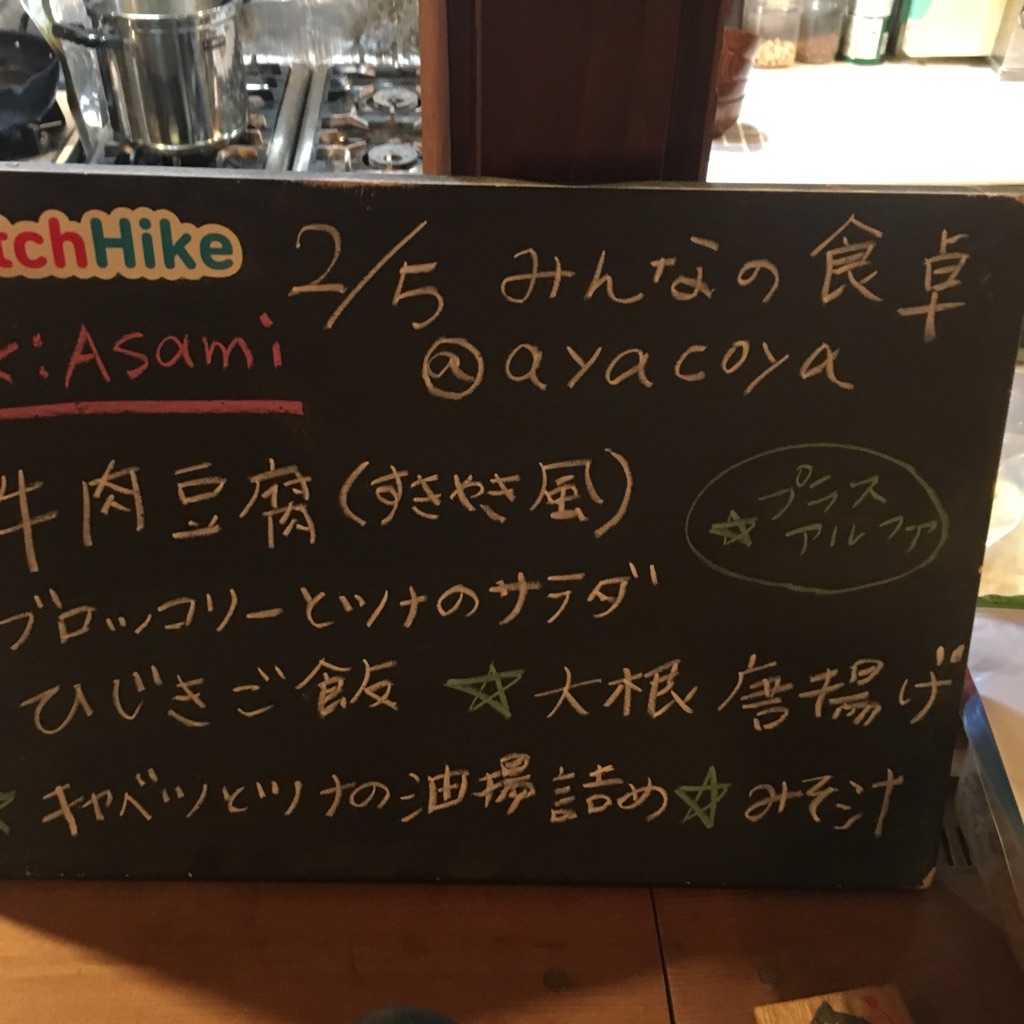 tchHike 2/5 みんなの食卓
:Asami @ayacoya
牛肉豆腐(すきやき風)
☆プラス
アルファ
ブロッコリーとツナのサラダ
ひじきご飯 ☆大根唐揚げ
☆キャベツとツナの油揚詰め☆みそ汁